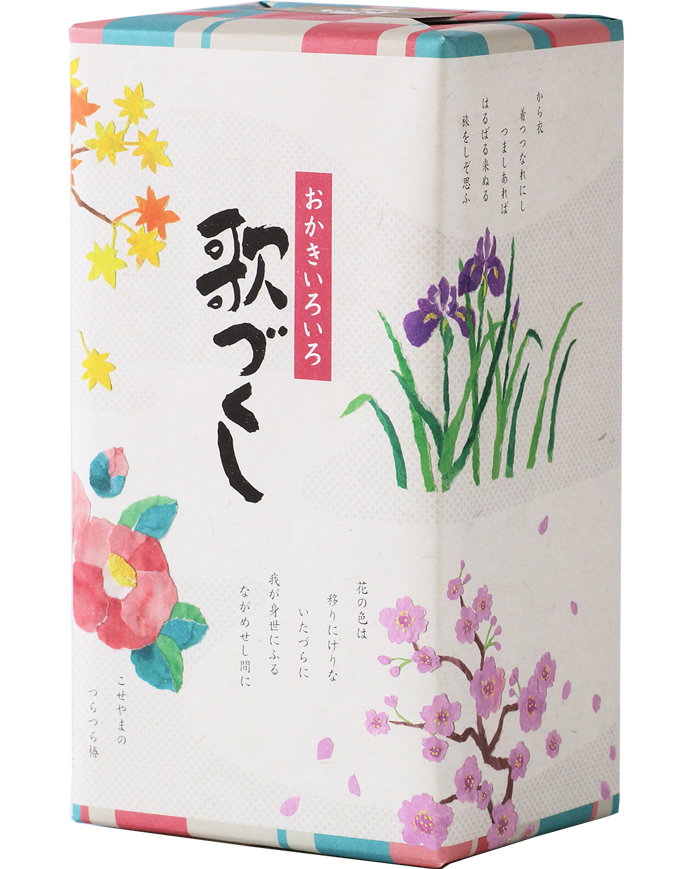 おかきいろいろ
歌づくし
から衣
着つつなれにし
つましあれば
はるばる来ぬる
旅をしぞ思ふ
花の色は
移りにけりな
いたづらに
我が身世にふる
ながめせし間に
こせやまの
つらつら椿